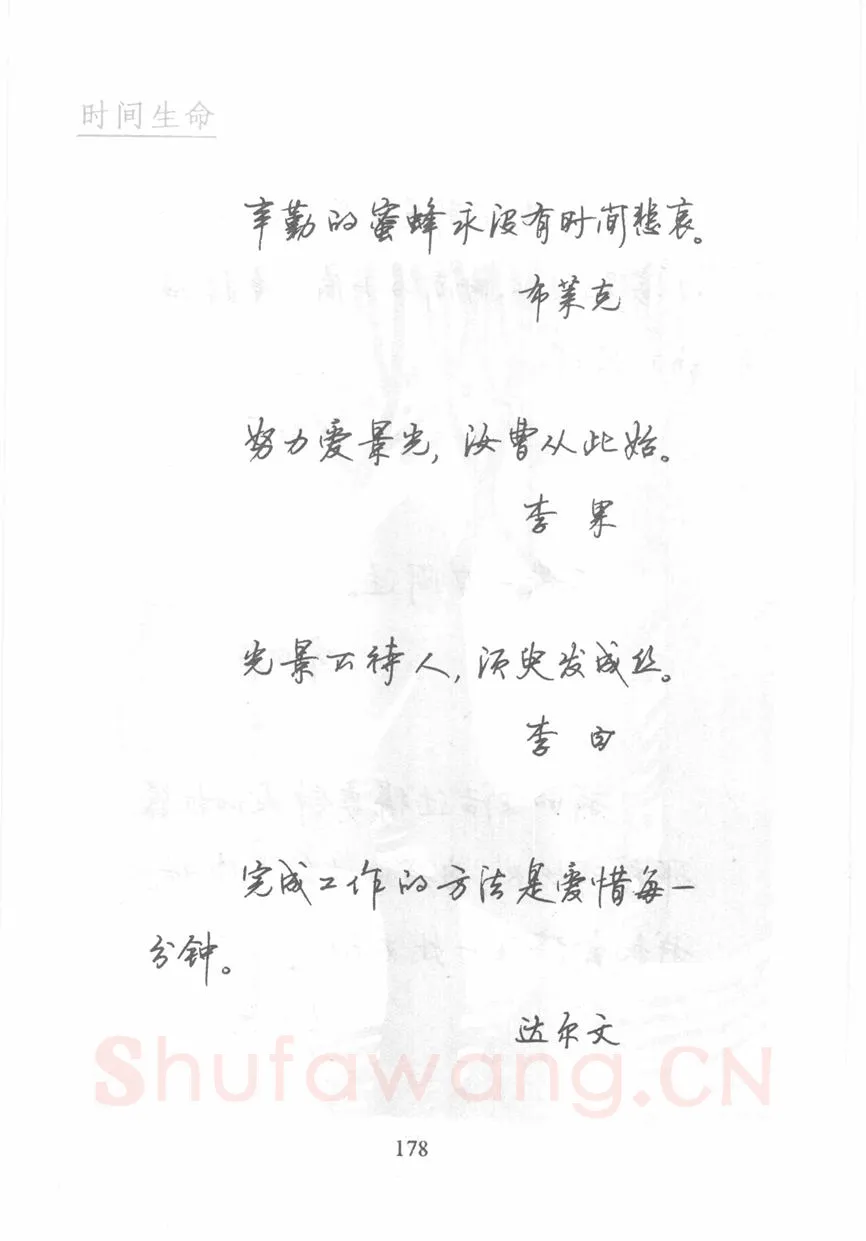 时间生命
辛勤的蜜蜂永没有时间悲哀。
布莱克
努力爱景光,汝曹从此始。
李 果
光景不待人,须臾发成丝。
李 白
完成工作的方法是爱惜每一
分钟。
达尔文
Shufawang.CN
178